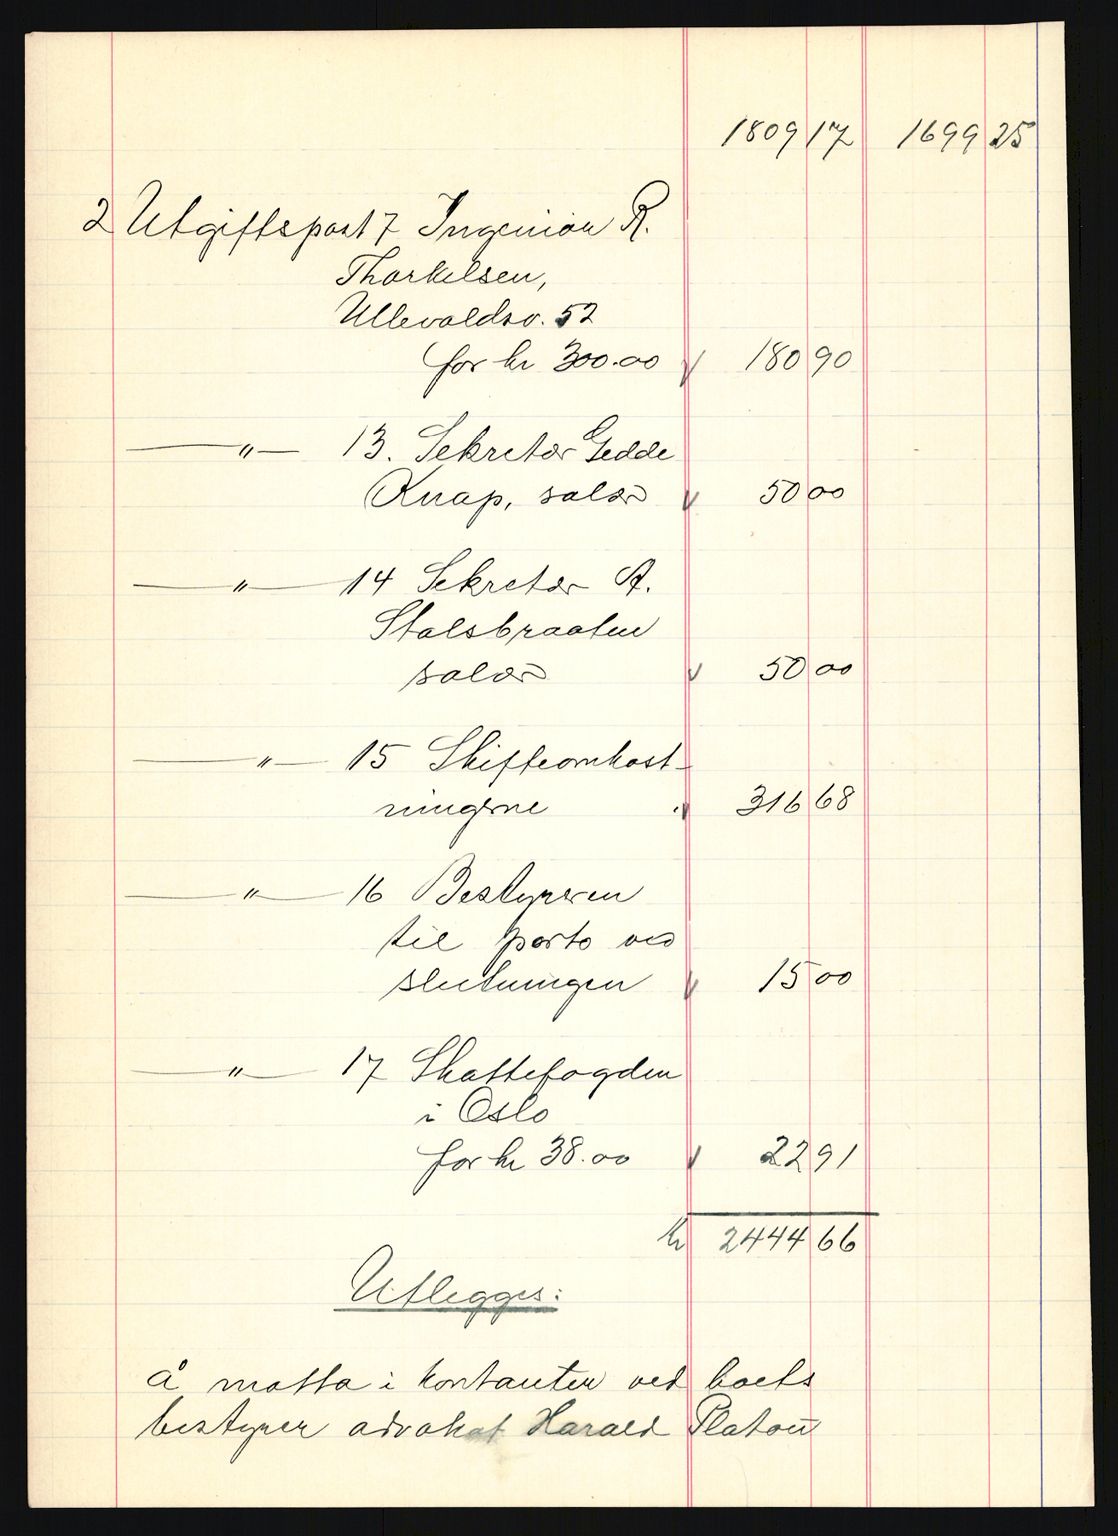 1809 17 1699 25
2 Utgiftspost 7 Ingeniør R.
Thorkelsen,
Ullevoldsv. 52
for kr 300.00 v 180 90
—"— 13. Sekretær Gedde
Knap, salær v 50 00
—"— 14 Sekretær A.
Stalsbraaten
salær v 50 00
—"— 15 Skifteomkost-
ningerne v 316 68
—"— 16 Bestyreren
til porto ved
slutningen v 15 00
—"— 17 Skattefogden
i Oslo
for kr 38.00 v 22 91
kr 2444 66
Utlegges:
Å motta i kontanter ved boets
bestyrer advokat Harald Platou